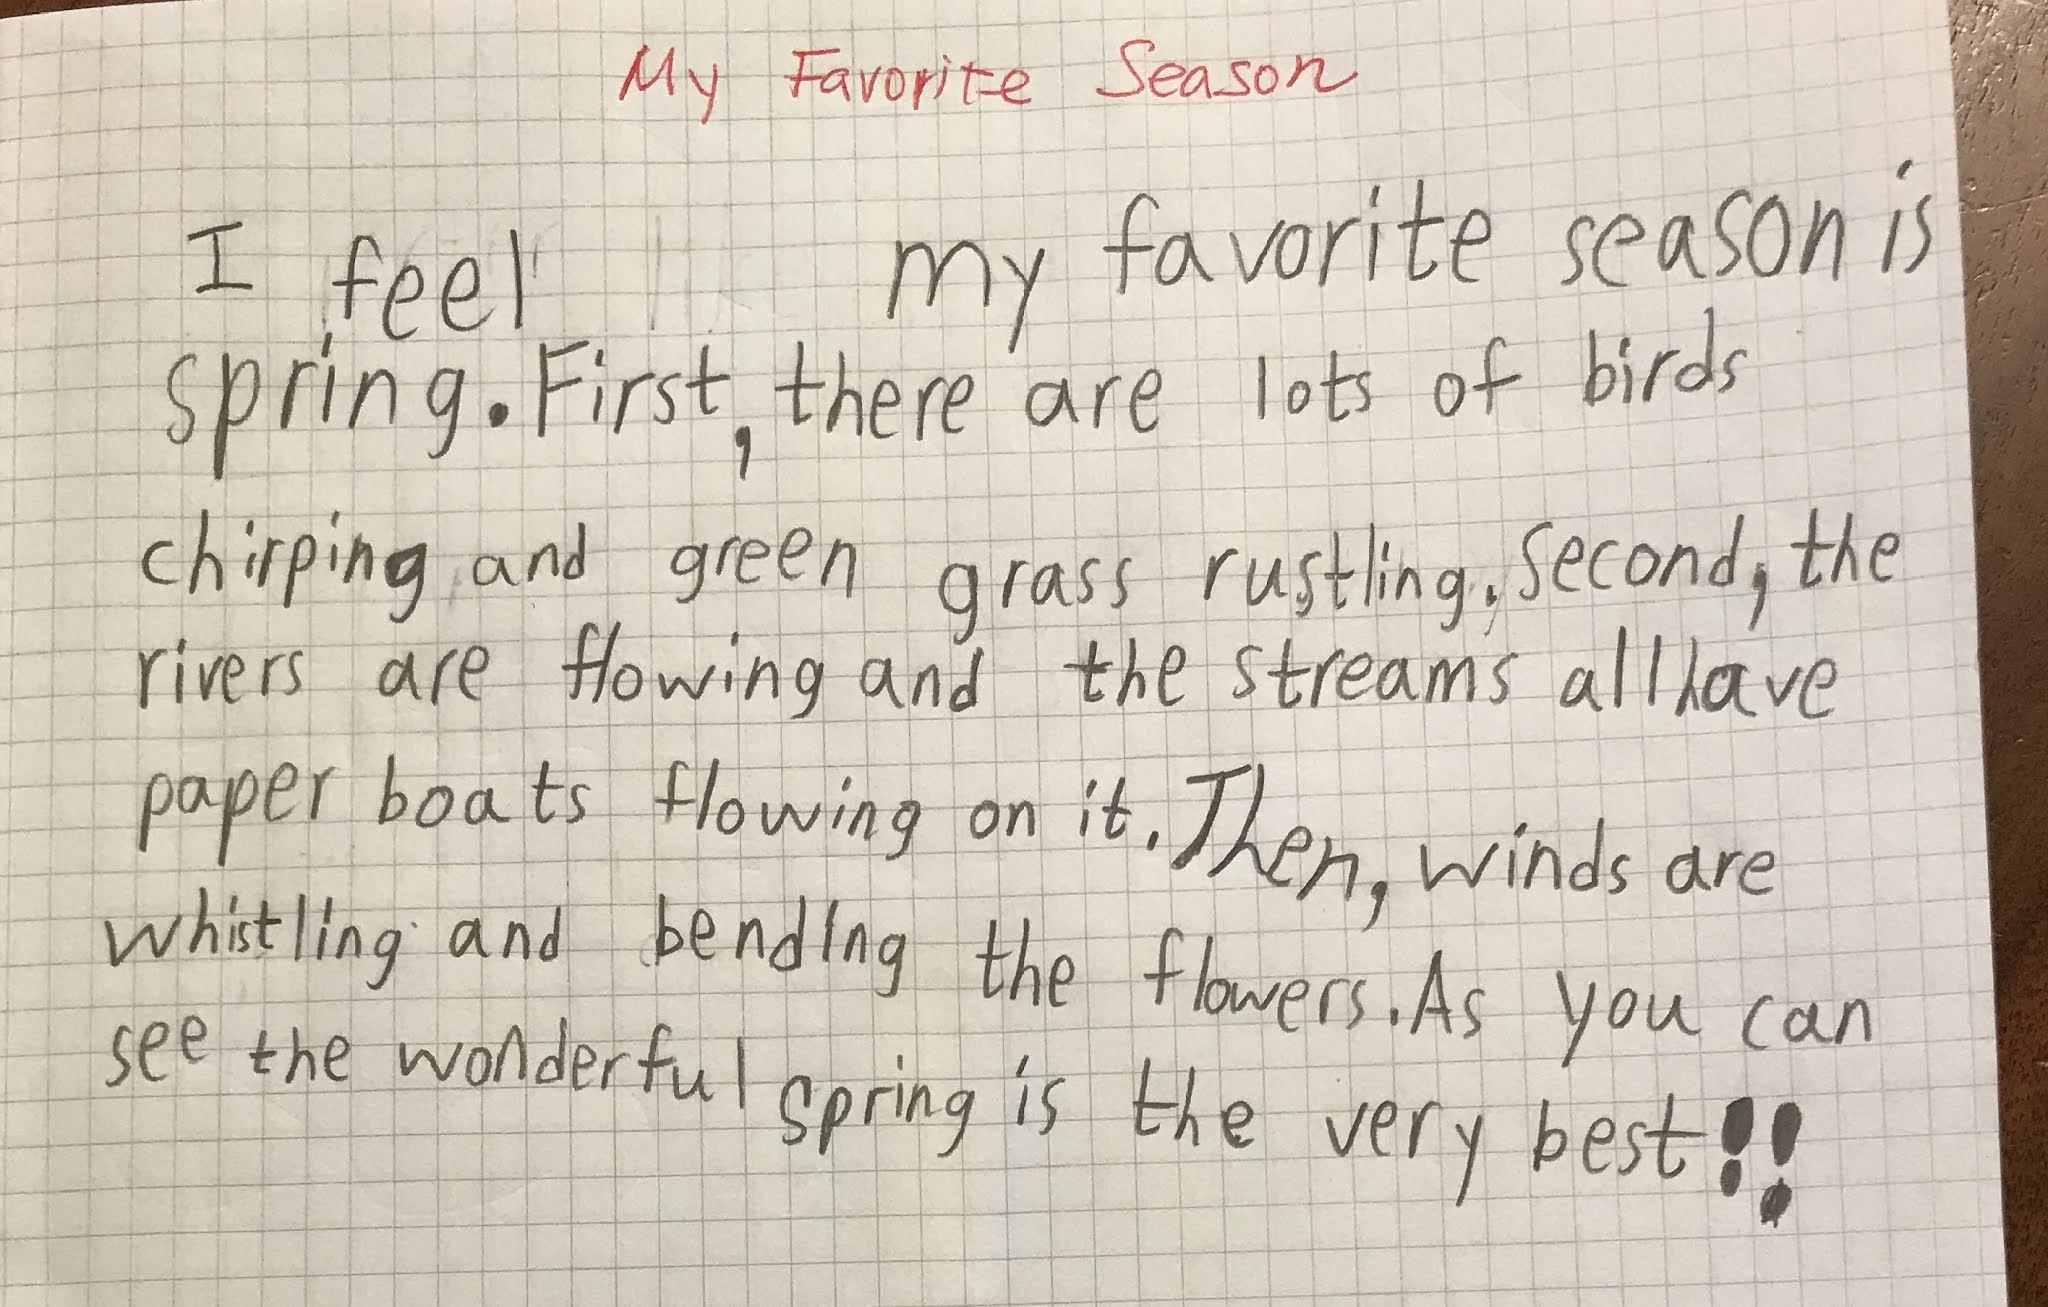 My Favorite Season
I feel my favorite season is
spring. First, there are lots of birds
chirping and green grass rustling. Second, the
rivers are flowing and the streams all have
paper boats flowing on it. Then, winds are
whistling and bending the flowers. As you can
see the wonderful spring is the very best!!